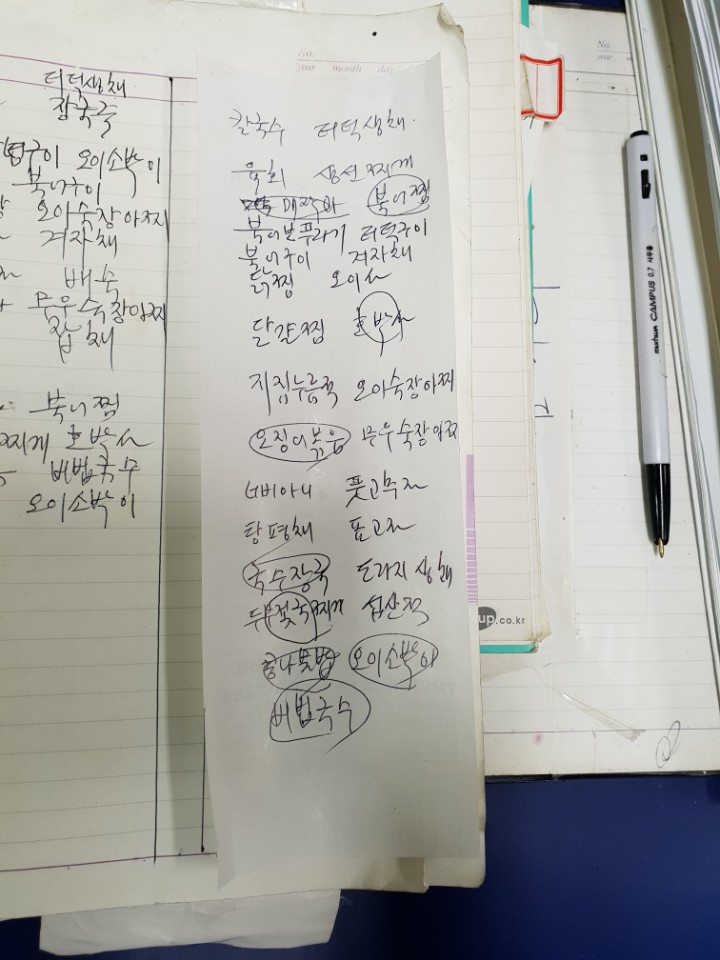 No.
year month day
No.
year
더덕생채
장국죽
구이 오이소박이
북어구이
오이숙장아찌
겨자채
배숙
무우숙장아찌
잡채
북어찜
찌게 호박선
비빔국수
오이소박이
칼국수 더덕생채
육회 생선찌개
매작과 북어찜
북어보푸라기 더덕구이
북어구이 겨자채
닭찜 오이선
달걀찜 호박선
지짐누름적 오이숙장아찌
오징어볶음 무우숙장아찌
너비아니 풋고추전
탕평채 표고전
국수장국 도라지생채
두부젓국찌개 섭산적
콩나물밥 오이소박이
비빔국수
up.co.kr
CAMPUS 0.7 사무용